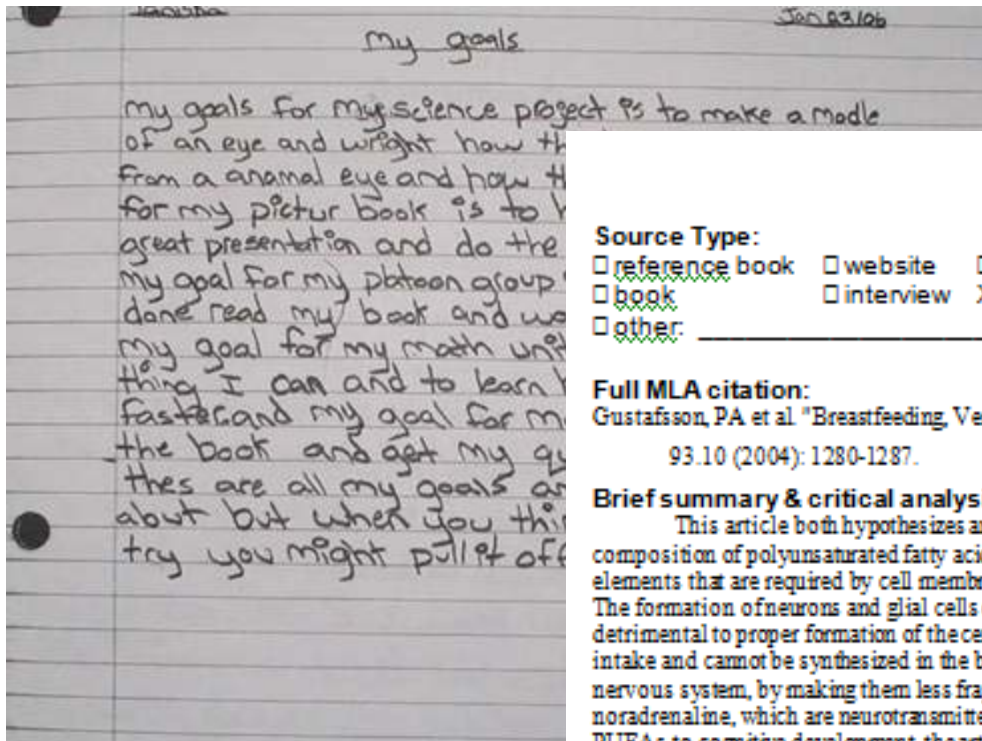 Jan 23/06
my goals
my goals for my science project is to make a modle
of an eye and wright how th
from a anamal eye and how th
for my pictur book is to h
great presentation and do the
my goal for my platoon group
done read my book and wo
my goal for my math unit
thing I can and to learn h
faster and my goal for m
the book and get my qu
thes are all my goals an
abut but when you thin
try you might pull it off
Source Type:
☐ reference book ☐ website
☐ book ☐ interview
☐ other:
Full MLA citation:
Gustafsson, PA et al. "Breastfeeding, Ve
93.10 (2004): 1280-1287.
Brief summary & critical analys
This article both hypothesizes a
composition of polyunsaturated fatty aci
elements that are required by cell membr
The formation of neurons and glial cells
detrimental to proper formation of the ce
intake and cannot be synthesized in the b
nervous system, by making them less fra
noradrenaline, which are neurotransmitte